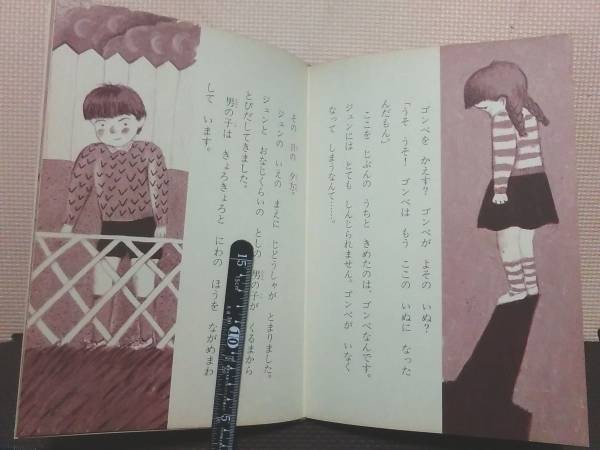 ゴンベを かえす? ゴンベが よその いぬ?
「うそ うそ! ゴンベは もう ここの いぬに なった
んだもん。」
ここを じぶんの うちと きめたのは、ゴンベなんです。
ジュンには とても しんじられません。ゴンベが いなく
なって しまうなんて……。
その 日の 夕がた。
ジュンの いえの まえに じどうしゃが とまりました。
ジュンと おなじくらいの としの 男の子が くるまから
とびだしてきました。
男の子は きょろきょろと にわの ほうを ながめまわ
して います。
15
10
5